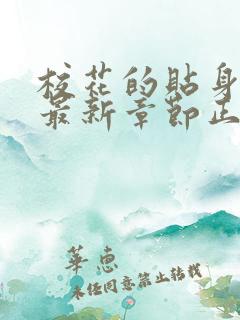 校花的貼身
最新章節正
華惠
未經同意禁止轉載